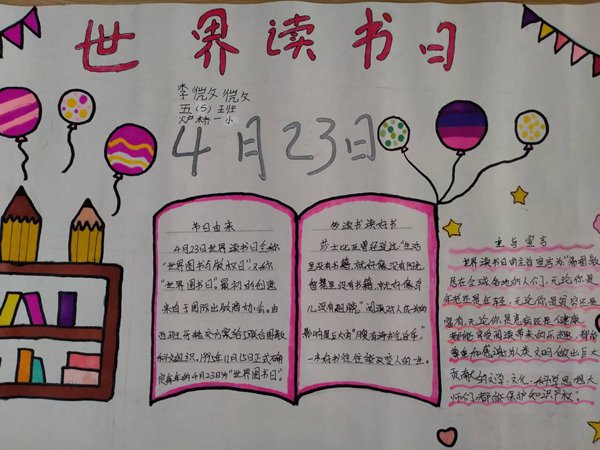 世界读书日
五(5)班
炉桥一小
4月23日
节日由来
4月23日世界读书日全称
“世界图书与版权日”又称
“世界图书日”最初的创意
来自于国际出版商协会。由
西班牙转交方案给了联合国教
科文组织，1995年11月15日正式确
定每年的4月23日为“世界图书日”。
多读书读好书
莎士比亚曾经说过：“生活
里没有书籍，就好像没有阳光
智慧里没有书籍，就好像鸟
儿没有翅膀。”阅读对人成长的
影响是巨大的“腹有诗书气自华。”
一本好书往往能改变人的一生。
主旨宣言
世界读书日的主旨宣言为：“希望散
居在全球各地的人们，无论你是
年老还是年轻，无论你是贫穷还是
富有，无论你是患病还是健康，
都能享受阅读带来的乐趣，都能
尊重和感谢为人类文明做出巨大
贡献的文学、文化、科学思想大
师们，都能保护知识产权！